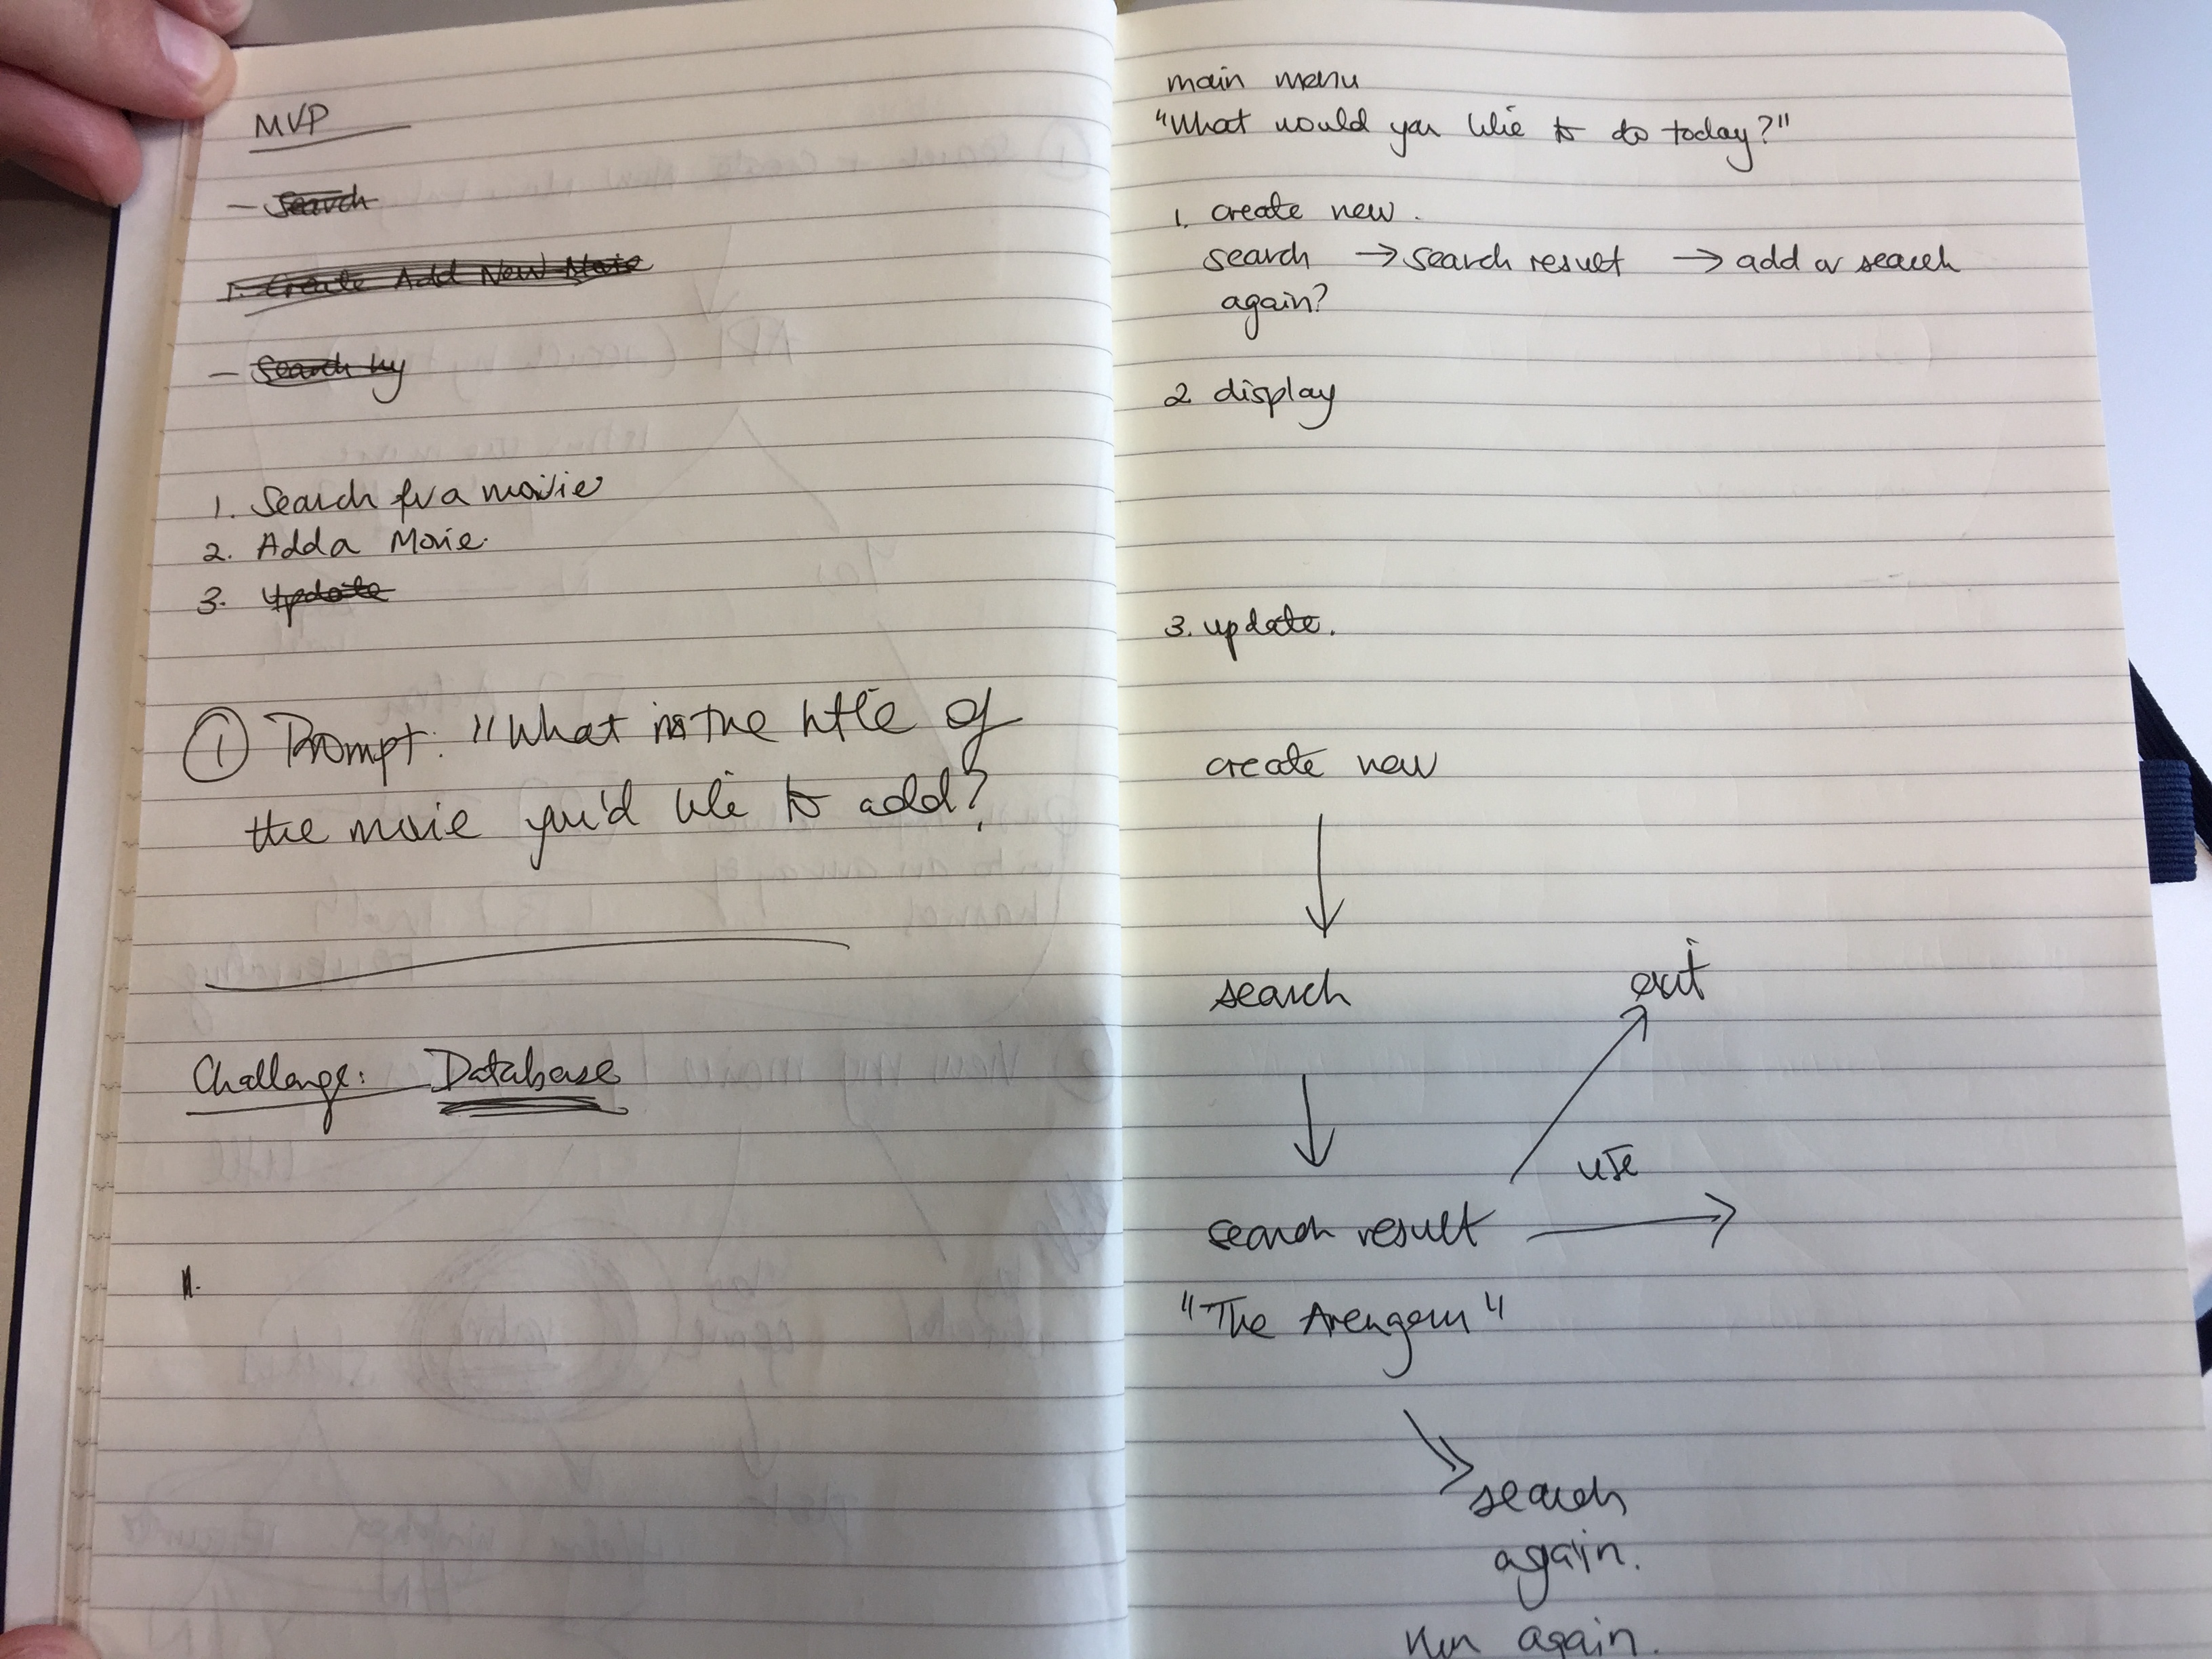 MVP
- Search
1. Create Add New Movie
- Search by
1. Search for a movie
2. Add a Movie.
3. Update
① Prompt: "What is the title of
the movie you'd like to add?
Challenge: Database
main menu
"What would you like to do today?"
1. create new.
search → search result → add or search
again?
2 display
3. update.
create new
search
exit
use
search result
"The Avengers"
search
again.
run again.